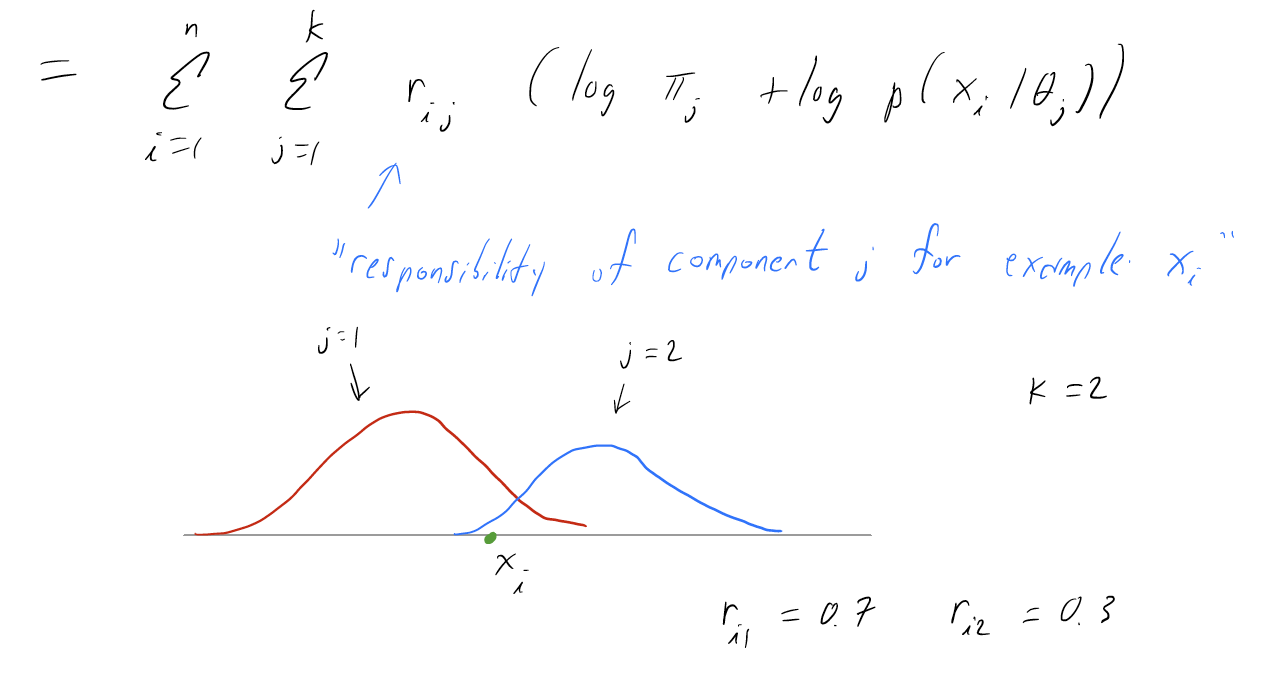 = n∑i=1 k∑j=1 r_ij (log π_j + log p(x_i | θ_j))
"responsibility of component j for example x_i"
j=1
j=2
k=2
x_i
r_i1 = 0.7 r_i2 = 0.3